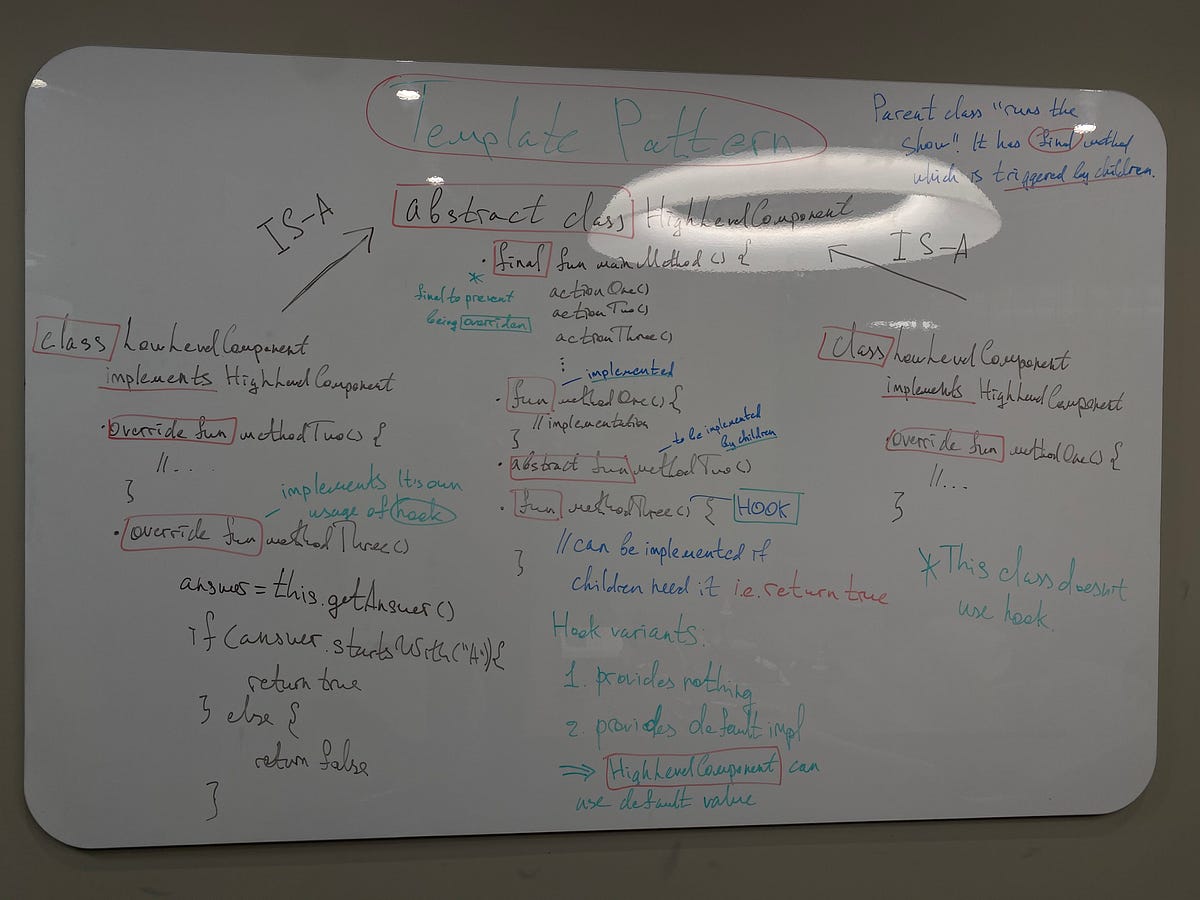 Template Pattern
Parent class "runs the
show". It has final method
which is triggered by children.
IS-A
abstract class HighLevelComponent
IS-A
· final fun mainMethod() {
*
final to prevent
being overriden
actionOne()
actionTwo()
actionThree()
⋮
implemented
· fun methodOne() {
// implementation
}
to be implemented
by children
· abstract fun methodTwo()
· fun methodThree() { HOOK
// can be implemented if
children need it i.e. return true
}
Hook variants:
1. provides nothing
2. provides default impl
⇒ HighLevelComponent can
use default value
class LowLevelComponent
implements HighLevelComponent
· override fun methodTwo() {
//...
}
implements It's own
usage of hook
· override fun methodThree()
answer = this.getAnswer()
if (answer.startsWith("A")) {
return true
} else {
return false
}
class LowLevelComponent
implements HighLevelComponent
override fun methodOne() {
//...
}
* This class doesn't
use hook.